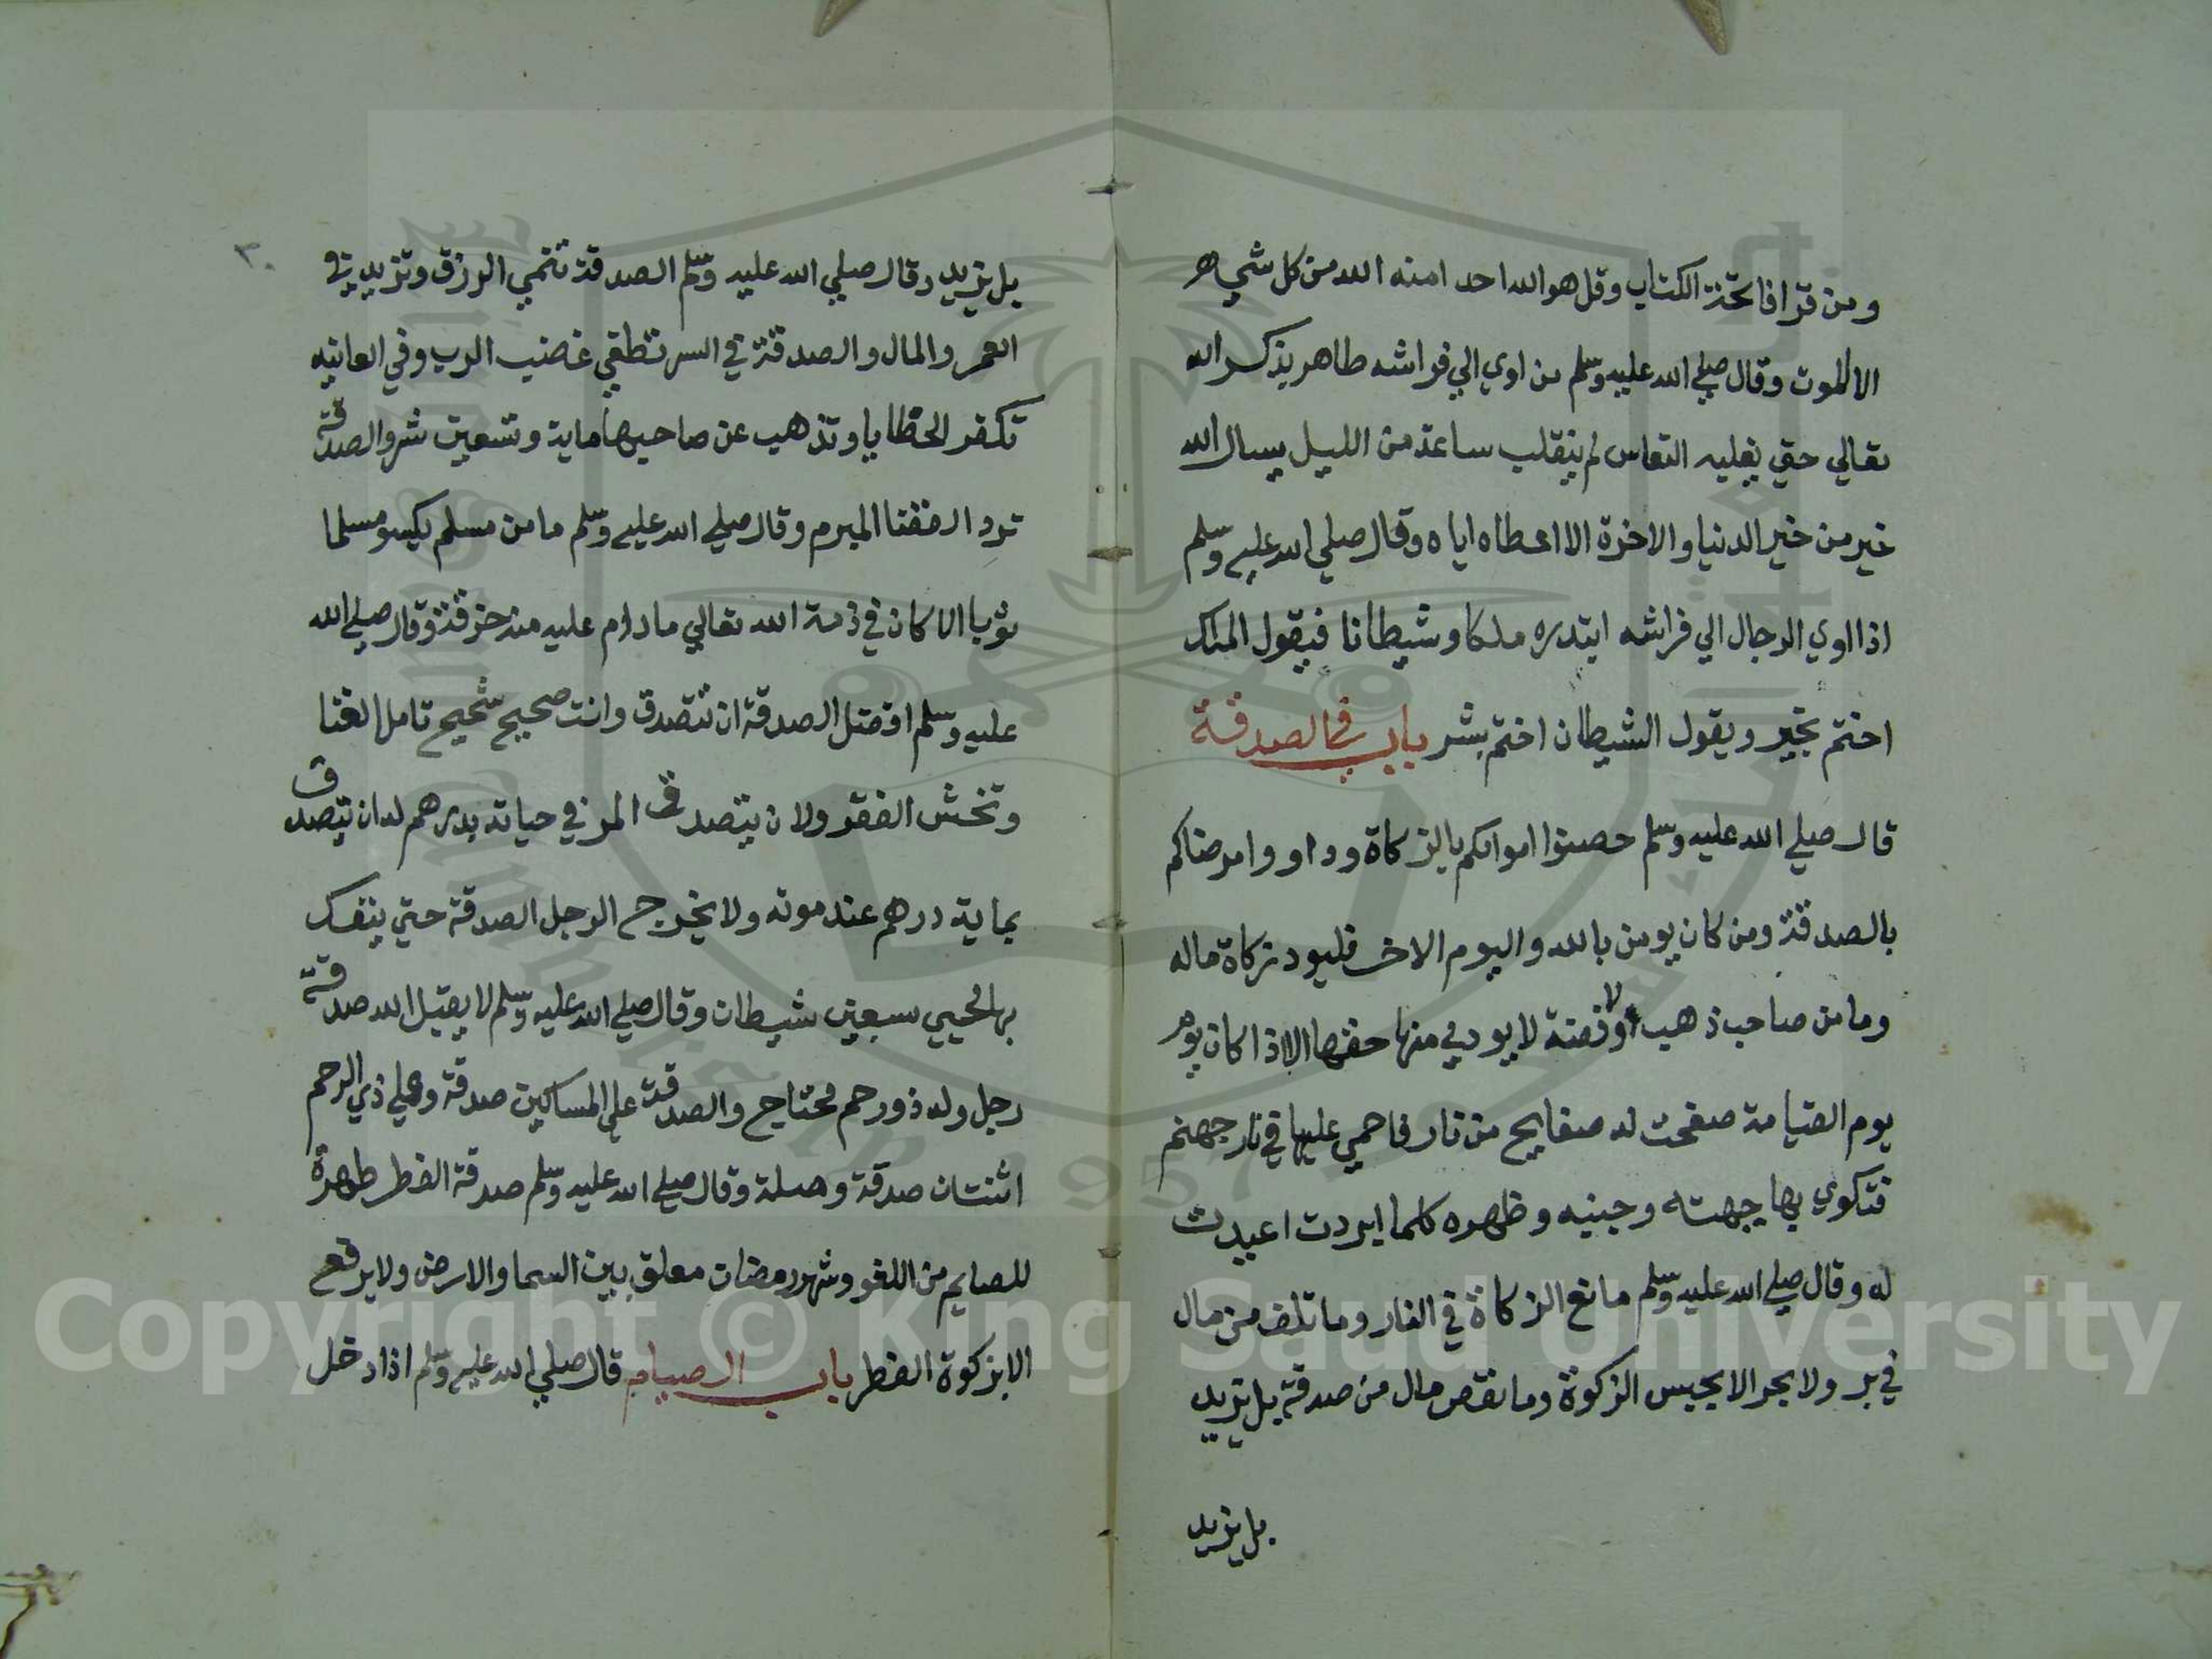 ومن قرا فاتحة الكتاب وقل هو الله احد امنه الله من كل شي
الا الموت وقال صلي الله عليه وسلم من اوي الي فراشه طاهر يذكر الله
تعالي حتي يغلبه النعاس لم ينقلب ساعة من الليل يسال الله
خير من خير الدنيا والاخرة الا اعطاه اياه وقال صلي الله عليه وسلم
اذا اوي الرجال الي فراشه ابتدره ملكا وشيطانا فيقول الملك
اختم بخير ويقول الشيطان اختم بشر باب في الصدقة
قال صلي الله عليه وسلم حصنوا اموالكم بالزكاة وداووا مرضاكم
بالصدقة ومن كان يومن بالله واليوم الاخر فليود زكاة ماله
وما من صاحب ذهب ولا فضة لا يودي منها حقها الا اذا كان يوم
يوم القيامة صفحت له صفايح من نار فاحمي عليها في نار جهنم
فتكوي بها جبهته وجبينه وظهره كلما ابردت اعيدت
له وقال صلي الله عليه وسلم مانع الزكاة في النار وما تلف من مال
في بر ولا بحر الا بحبس الزكوة وما نقص مال من صدقة بل تزيد
بل يزيد
٣٠
بل يزيد وقال صلي الله عليه وسلم الصدقة تنمي الرزق وتزيد في
العمر والمال والصدقة في السر تطفي غضب الرب وفي العانيه
تكفر الخطايا وتذهب عن صاحبها ماية وتسعين شر والصدقة
ترد القضا المبرم وقال صلي الله عليه وسلم ما من مسلم يكسو مسلما
ثوبا الا كان في ذمة الله تعالي ما دام عليه منه خرقة وقال صلي الله
عليه وسلم افضل الصدقة ان تتصدق وانت صحيح شحيح تامل الغنا
وتخش الفقر ولان يتصدق المر في حياته بدرهم له ان يتصدق
بماية درهم عند موته ولا يخرج الرجل الصدقة حتي ينفك
بها لحيي سبعين شيطان وقال صلي الله عليه وسلم لا يقبل الله صدقة
رجل وله ذو رحم محتاج والصدقة علي المساكين صدقة وعلي ذي الرحم
اثنتان صدقة وصلة وقال صلي الله عليه وسلم صدقة الفطر طهرة
للصايم من اللغو وشهر رمضان معلق بين السما والارض ولا يرفع
الا بزكوة الفطر باب الصيام قال صلي الله عليه وسلم اذا دخل
Copyright © King Saud University
1957